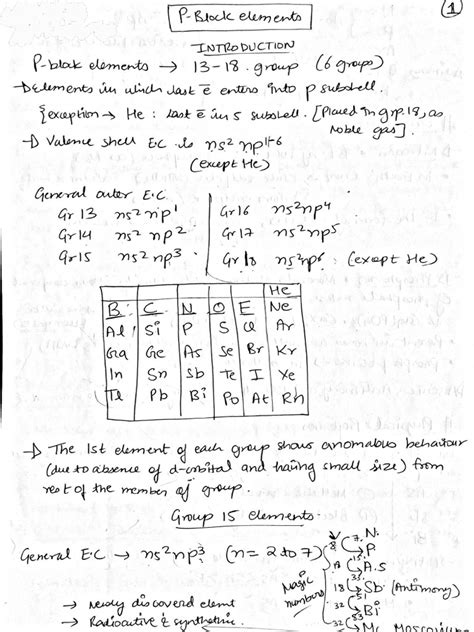 P-Block elements
1
INTRODUCTION
P-block elements → 13-18 group (6 groups)
→ Elements in which last e̅ enters into p subshell.
{exception → He : last e̅ in s subshell. [Placed in grp. 18, as
Noble gas].
→ Valence shell E.C is ns² np¹⁻⁶
(except He)
General outer E.C.
Gr 13 ns² np¹
Gr 14 ns² np²
Gr 15 ns² np³
Gr 16 ns² np⁴
Gr 17 ns² np⁵
Gr 18 ns² np⁶ : (except He)
He
B C N O F Ne
Al Si P S Cl Ar
Ga Ge As Se Br Kr
In Sn Sb Te I Xe
Tl Pb Bi Po At Rn
→ The 1st element of each group shows anomalous behaviour
(due to absence of d-orbital and having small size) from
rest of the member of group.
Group 15 elements.
General E.C → ns² np³ (n = 2 to 7)
Magic
numbers
8
18
18
32
32
7 N.
15 P.
33 A.s
51 Sb (Antimony)
83 Bi
Mc Moscovium
→ Newly discoverd elemt
→ Radioactive & synthetic.